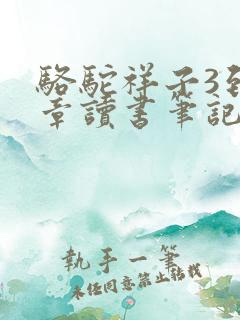 駱駝祥子3到
章讀書筆記
執手一筆
未經同意禁止轉載